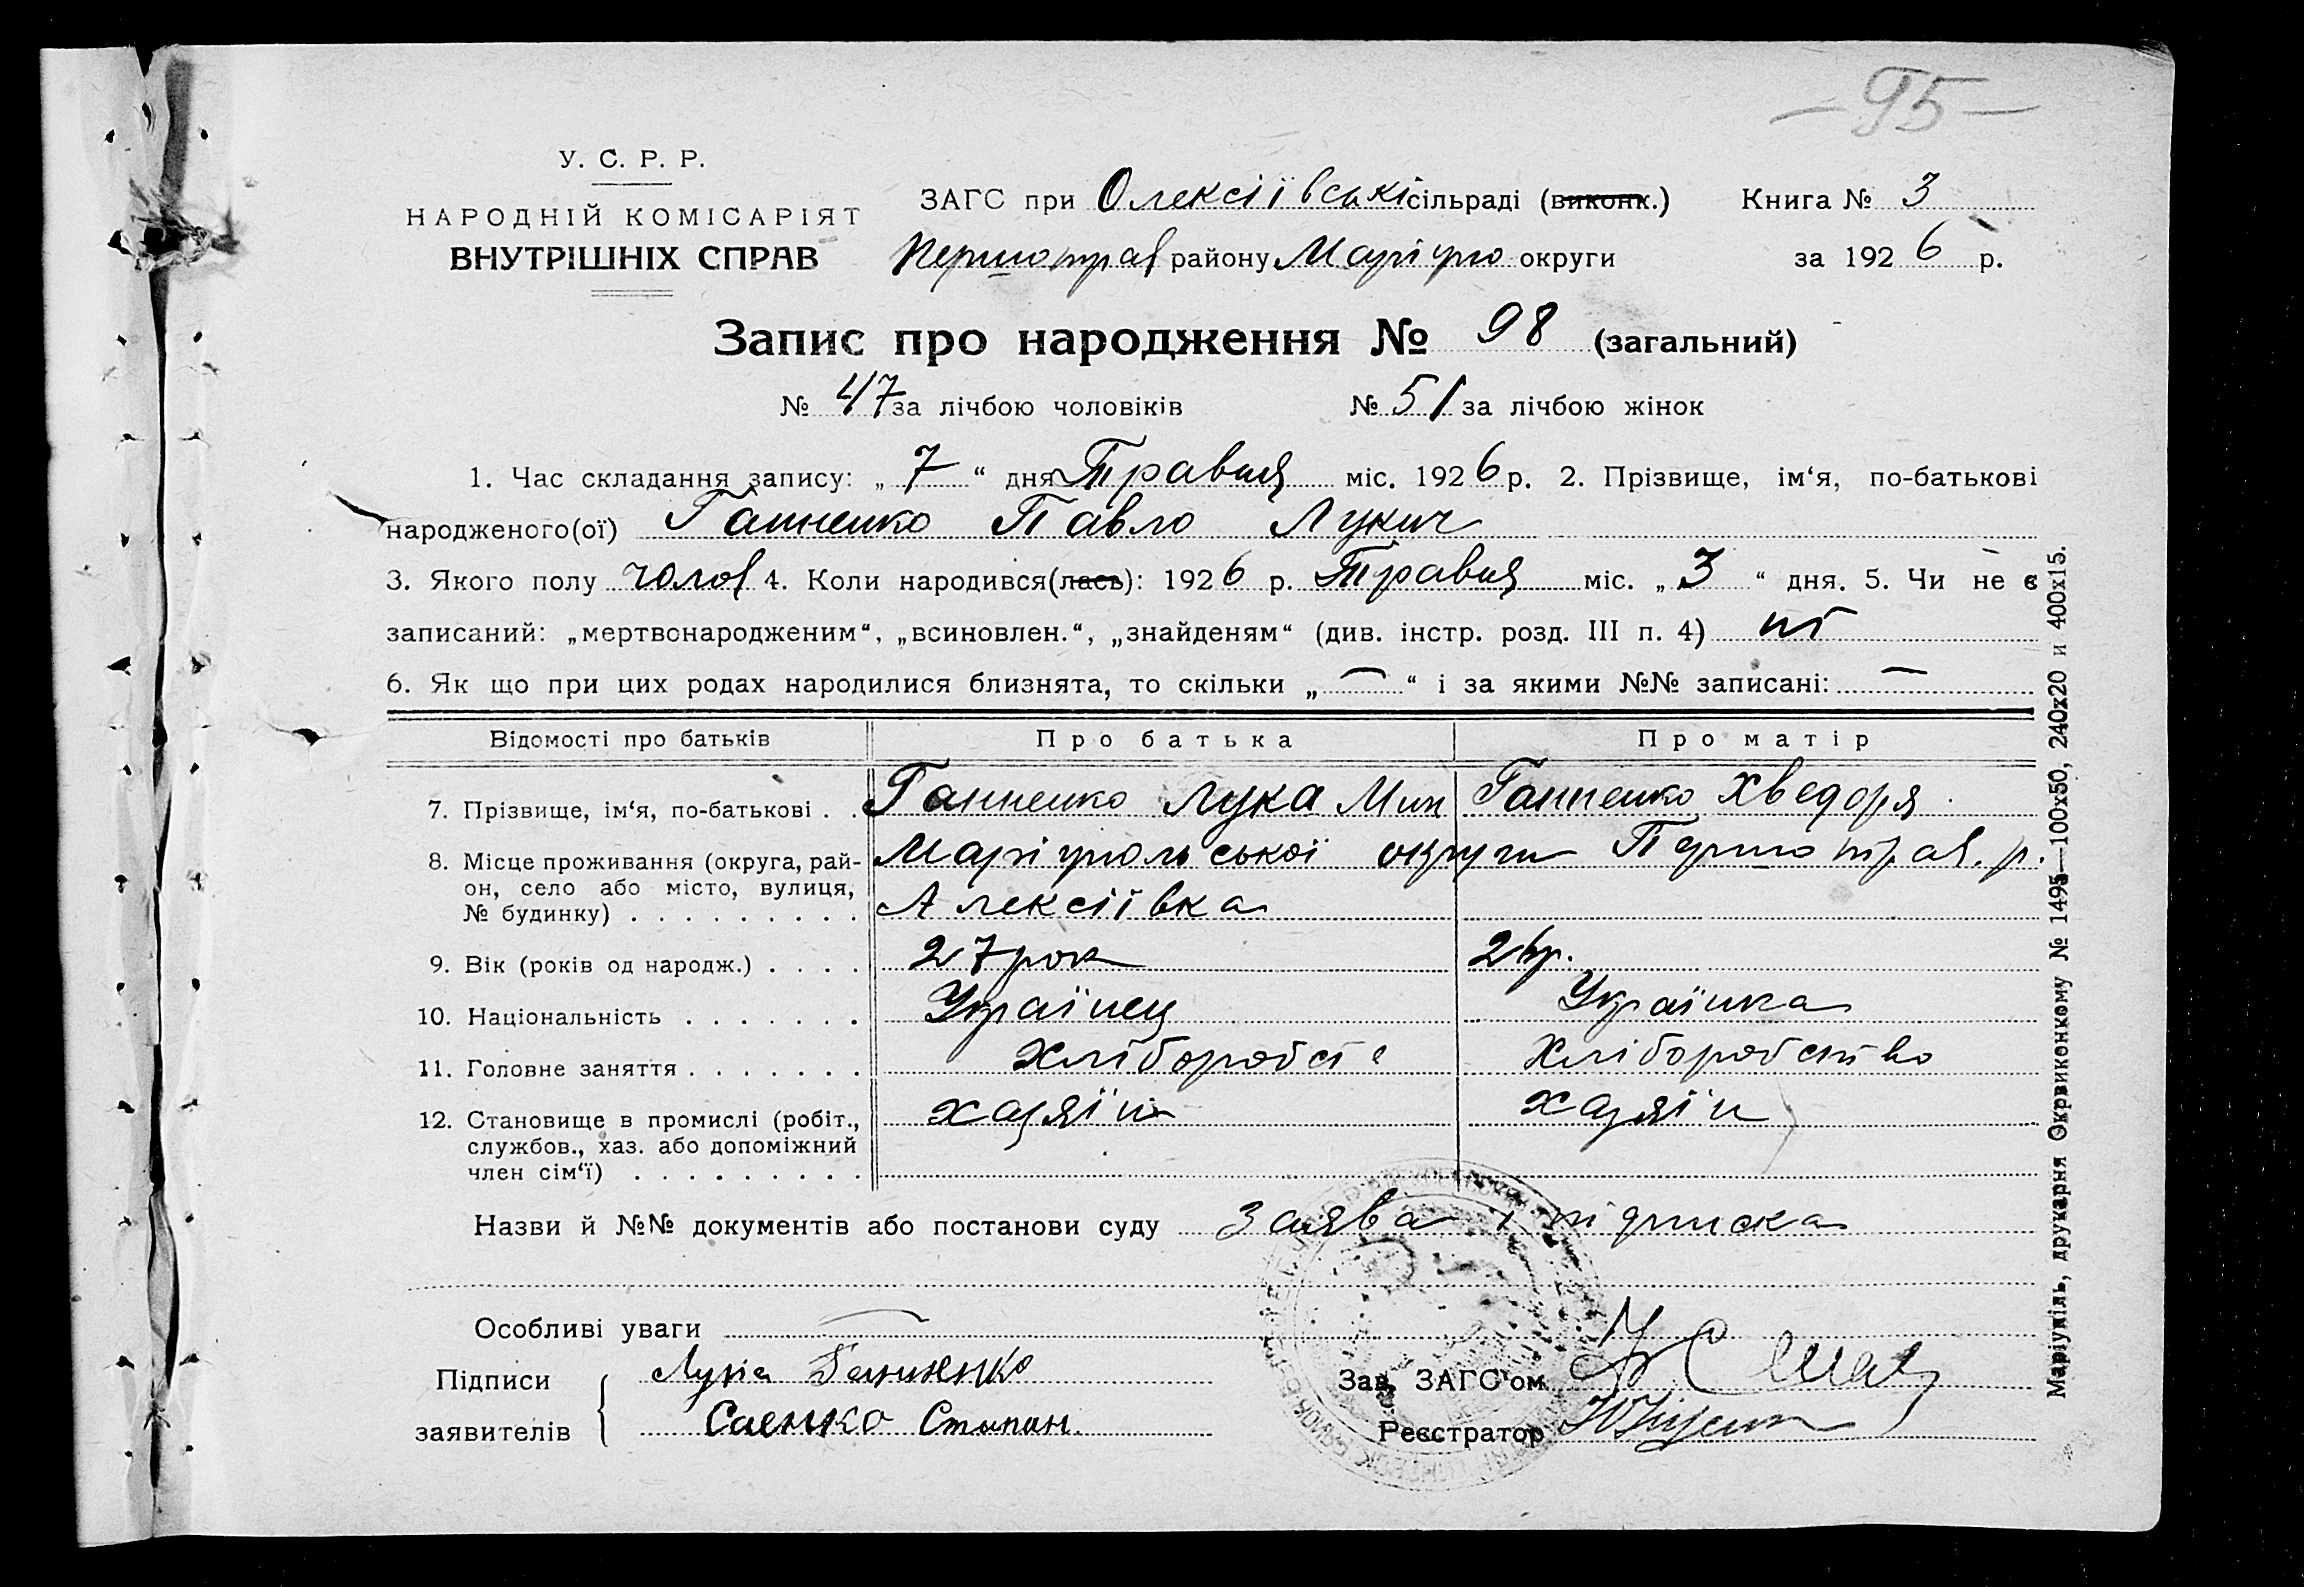 — 95 —
У. С. Р. Р.
НАРОДНІЙ КОМІСАРІЯТ
ВНУТРІШНІХ СПРАВ
ЗАГС при Олексіївські сільраді (виконк.) Книга № 3
Першотрав району Маріупо округи за 1926 р.
Запис про народження № 98 (загальний)
№ 47 за лічбою чоловіків № 51 за лічбою жінок
1. Час складання запису: „ 7 “ дня Травня міс. 1926 р. 2. Прізвище, ім‘я, по-батькові
народженого(ої) Ганненко Павло Лукич
3. Якого полу чолов 4. Коли народився(лась): 1926 р. Травня міс. „ 3 “ дня. 5. Чи не є
записаний: „мертвонародженим“, „всиновлен.“, „знайденям“ (див. інстр. розд. III п. 4) ні
6. Як що при цих родах народилися близнята, то скільки „ — “ і за якими №№ записані: —
Відомості про батьків Про батька Про матір
7. Прізвище, ім‘я, по-батькові . . Ганненко Лука Мин Ганненко Хведоря
8. Місце проживання (округа, рай- Маріупольської округи Першотрав. р.
он, село або місто, вулиця,
№ будинку) . . . . . . . . . Алексіївка
9. Вік (років од народж.) . . . . 27 рок 26 р.
10. Національність . . . . . . . Українец Українка
11. Головне заняття . . . . . . . Хліборобст Хліборобство
12. Становище в промислі (робіт., хазяїн хазяїн
службов., хаз. або допоміжний
член сім‘ї) . . . . . . . . .
Назви й №№ документів або постанови суду Заява і підписка
Особливі уваги —
Підписи Лука Ганненко Зав. ЗАГС‘ом
заявителів Саенко Степан. Реєстратор
Маріупіль, друкарня Окрвиконкому № 1495—100х50, 240х20 и 400х15.